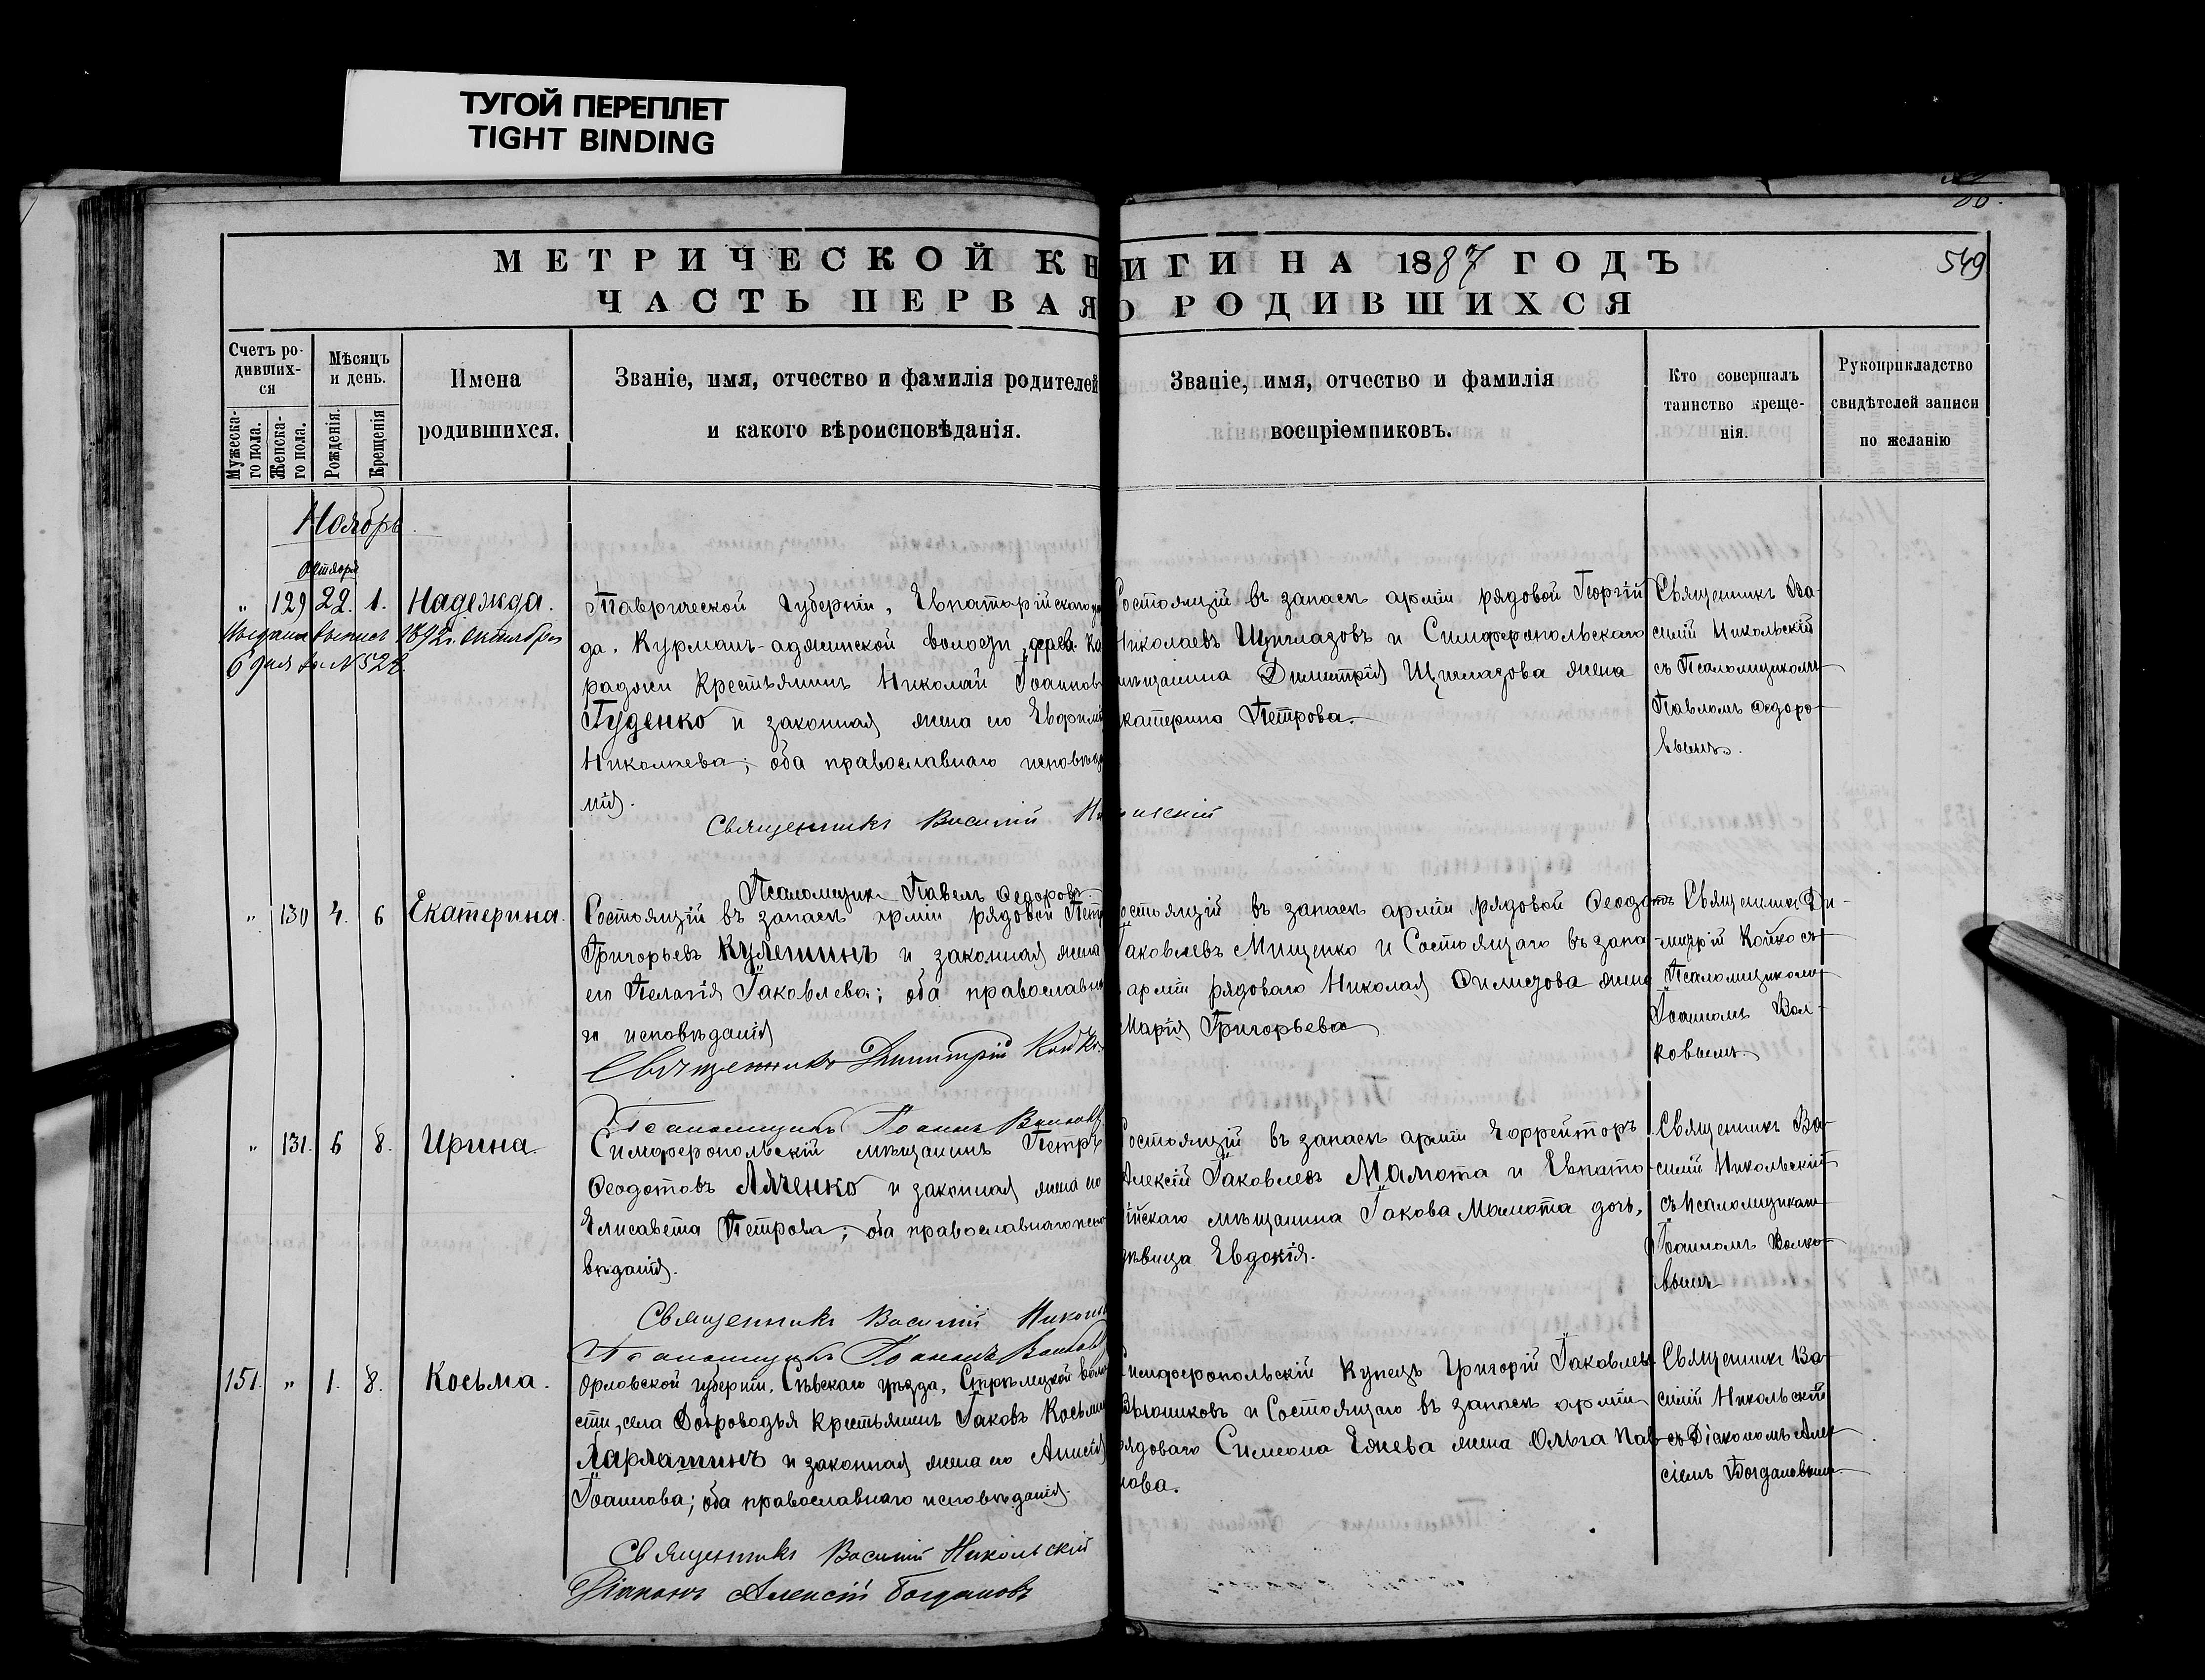 ТУГОЙ ПЕРЕПЛЕТ
TIGHT BINDING
МЕТРИЧЕСКОЙ КНИГИ НА 1887 ГОДЪ
549
ЧАСТЬ ПЕРВАЯ О РОДИВШИХСЯ
Счетъ ро-
дивших-
ся
Мужеска-
го пола.
Женска-
го пола.
Мѣсяцъ
и день.
Рожденія.
Крещенія
Имена
родившихся.
Званіе, имя, отчество и фамилія родителей
и какого вѣроисповѣданія.
Званіе, имя, отчество и фамилія
воспріемниковъ.
Кто совершалъ
таинство креще-
нія.
Рукоприкладство
свидѣтелей записи
по желанію
Ноябрь
Октября
" 129 22. 1. Надежда.
1892 г. октября
6 дня за № 528
Таврической Губерніи, Евпаторійскаго
да, Курманъ-аджинской волости, дерев. Ка
раджи Крестьянинъ Николай Іоаннов
Гуденко и законная жена его Евфимі
Николаева; оба православнаго исповѣда
нія.
Священникъ Василій Никольскій
Псаломщик Павелъ Ѳедоровъ
остоящій въ запасѣ арміи рядовой Георгій
Николаевъ Щиглазовъ и Симферопольскаго
мѣщанина Димитрія Щиглазова жена
катерина Петрова.
Священникъ Ва-
силій Никольскій
съ Псаломщикомъ
Павломъ Ѳедоро-
вымъ.
" 130 4. 6 Екатерина.
Состоящій въ запасѣ арміи рядовой Петр
Григорьевъ Кулешинъ и законная жена
его Пелагія Іаковлева; оба православна
го исповѣданія
Священникъ Димитрій Койко
Псаломщикъ Іоаннъ Волковъ
остоящій въ запасѣ арміи рядовой Ѳеодотъ
Іаковлевъ Мищенко и Состоящаго въ запа-
арміи рядоваго Николая жена
Марія Григорьева
Священникъ Ди-
митрій Койко съ
Псаломщикомъ
Іоанномъ Вол-
ковымъ.
" 131. 6 8. Ирина.
Симферопольскій мѣщанинъ Петръ
Ѳеодотовъ Ляченко и законная жена его
Елисавета Петрова; оба православнаго испо
вѣданія.
Священникъ Василій Николь
Псаломщикъ Іоаннъ Волков
остоящій въ запасѣ арміи Ефрейторъ
Алексій Іаковлевъ Мамота и Евпато-
ійскаго мѣщанина Іакова Мамота дочь,
дѣвица Евдокія.
Священникъ Ва-
силій Никольскій
съ Псаломщикомъ
Іоанномъ Волко-
вымъ
151. " 1. 8. Косьма.
Орловской губерніи, Сѣвскаго уѣзда, Стрѣлецкой воло
сти, села Доброводья крестьянинъ Іаковъ Косьмин
Ларлашинъ и законная жена его Анисія
Іоаннова; оба православнаго исповѣданія.
Священникъ Василій Никольскій
Діаконъ Алексій Богдановъ
Симферопольскій Купецъ Григорій Іаковлевъ
Вьюниковъ и Состоящаго въ запасѣ арміи
рядоваго Симеона Ежева жена Ольга Пав-
лова.
Священникъ Ва-
силій Никольскій
съ Діакономъ Алек
сіемъ Богдановымъ